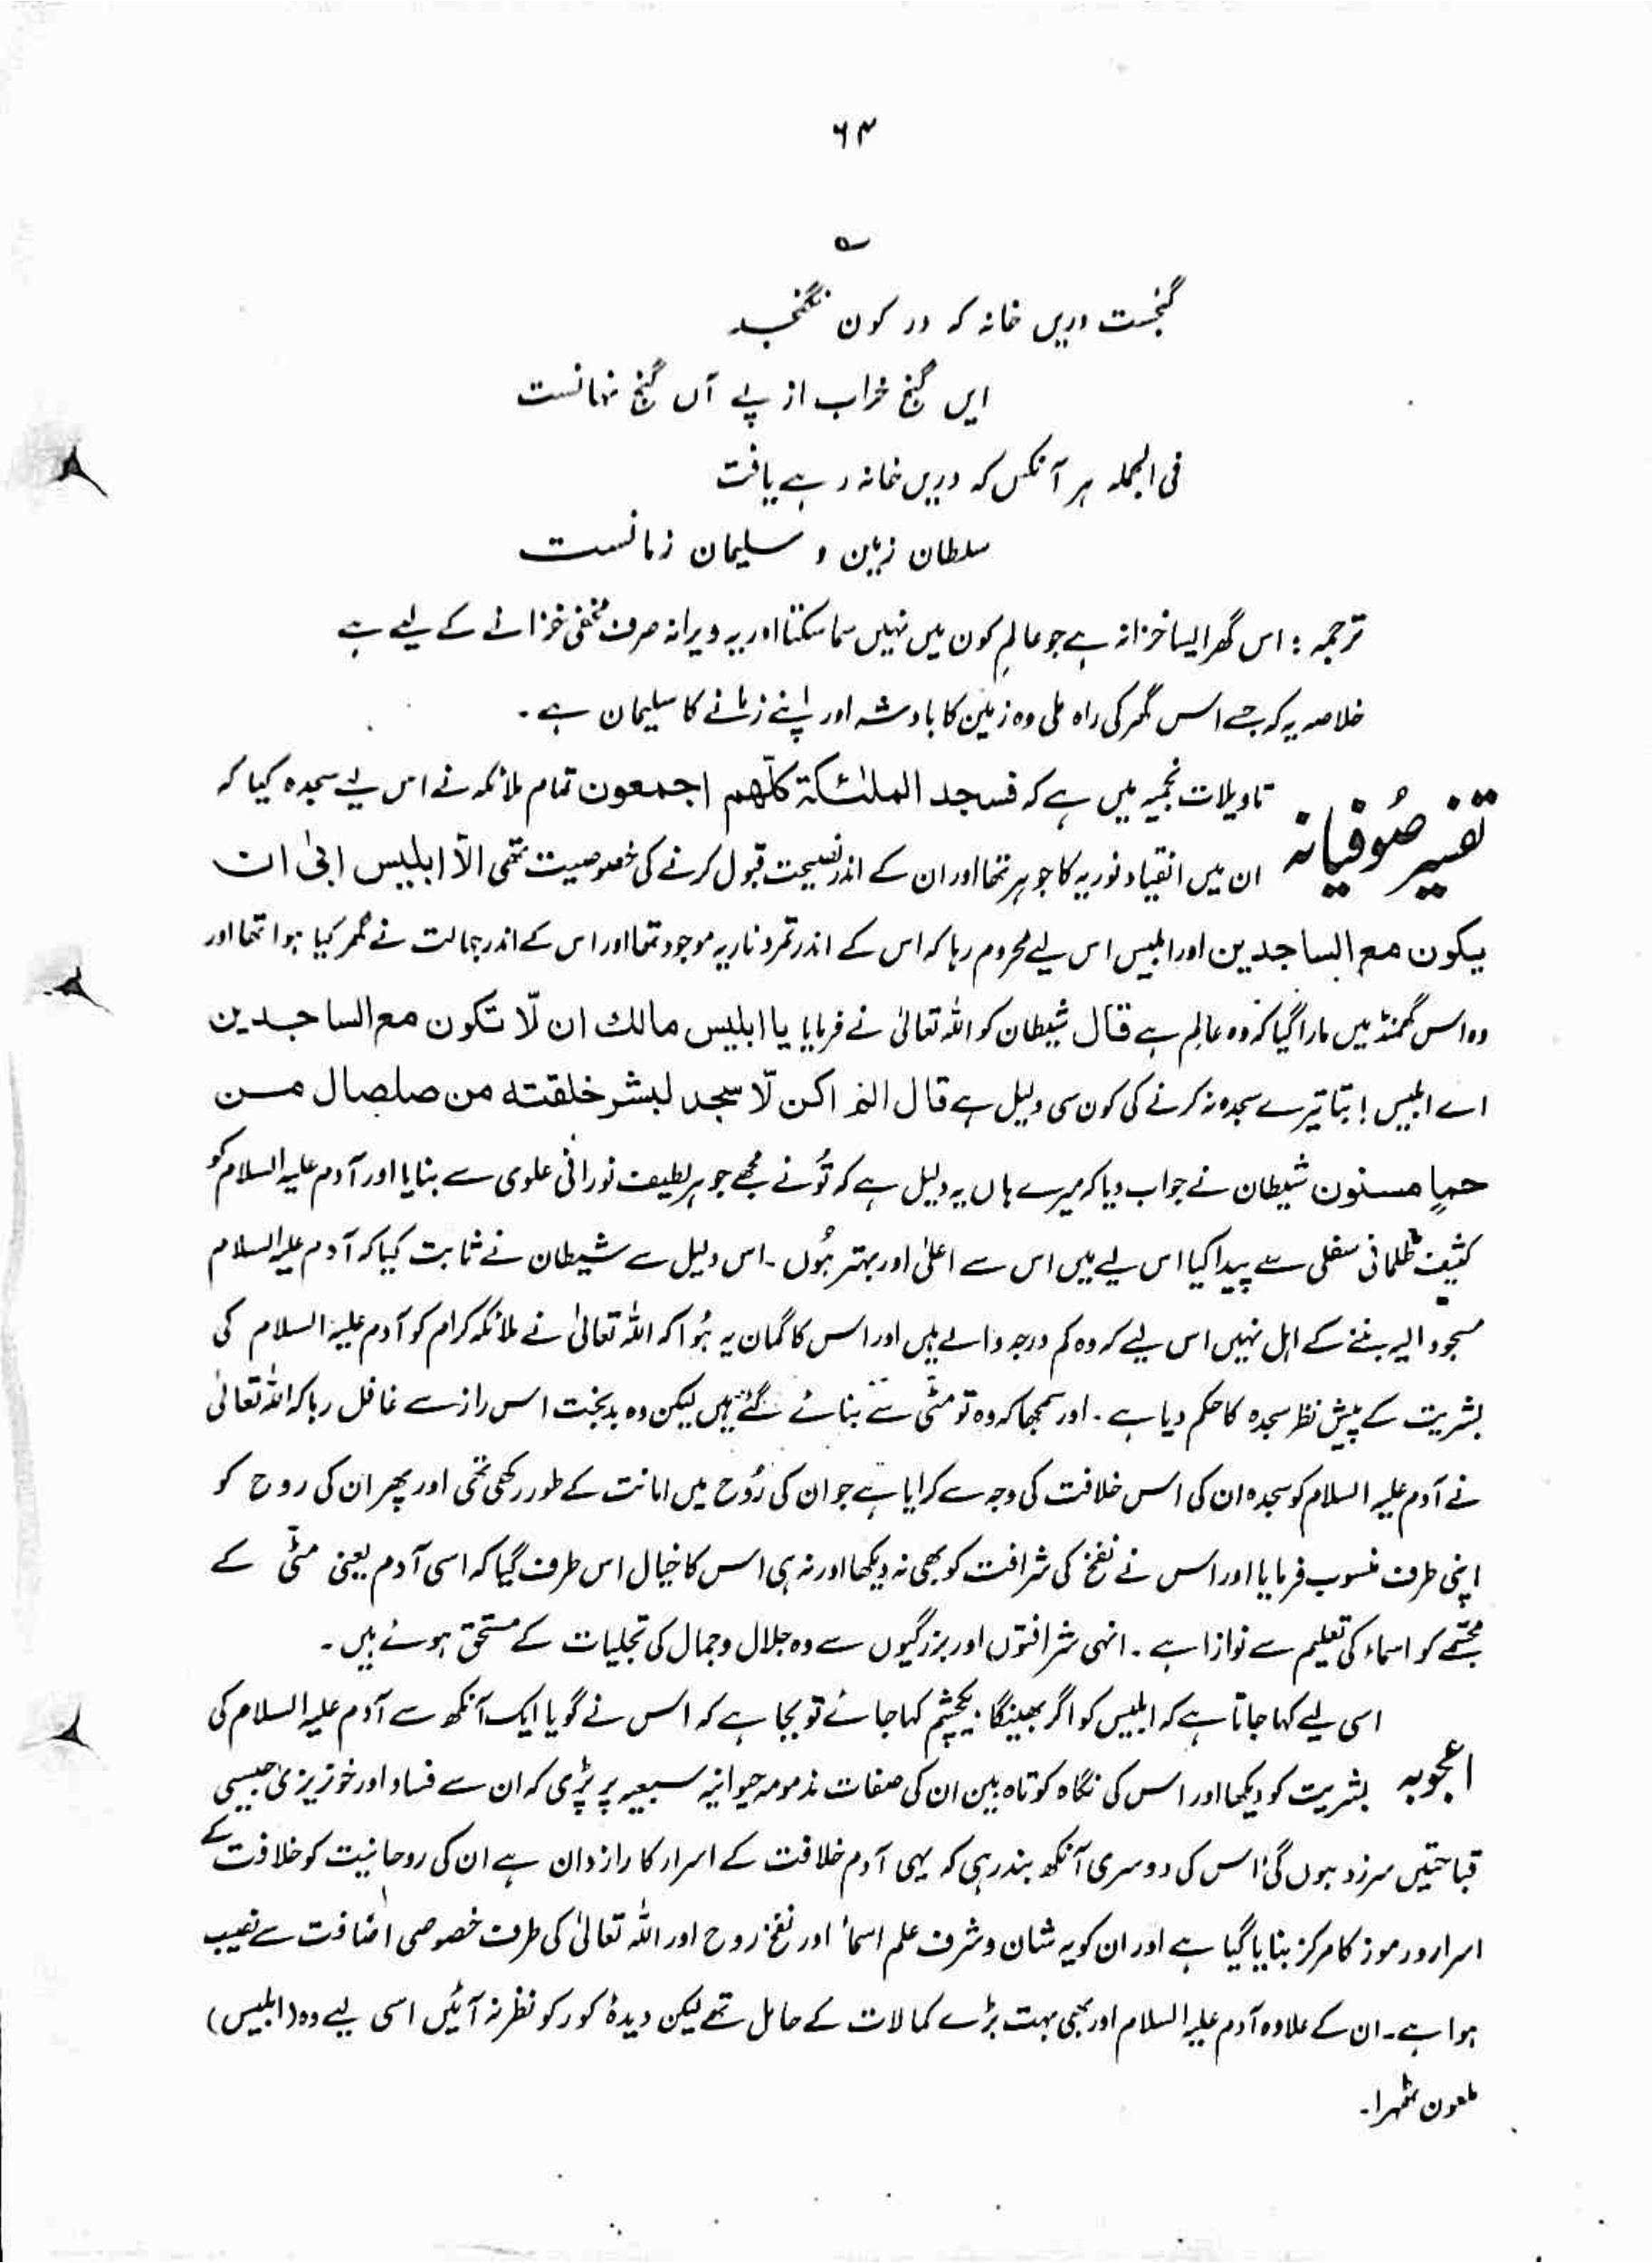 ۶۴
؎
گنجست دریں خانہ کہ در کون نگنجد
ایں گنج خراب از پے آں گنج نہانست
فی الجملہ ہر آنکس کہ دریں خانہ رہے یافت
سلطان زمین و سلیمان زمانست
ترجمہ : اس گھر ایسا خزانہ ہے جو عالمِ کون میں نہیں سما سکتا اور یہ ویرانہ صرف مخفی خزانے کے لیے ہے
خلاصہ یہ کہ جسے اس گھر کی راہ ملی وہ زمین کا بادشہ اور اپنے زمانے کا سلیمان ہے ۔
تفسیر صُوفیانہ تاویلات نجمیہ میں ہے کہ فسجد الملئکۃ کلّھم اجمعون تمام ملائکہ نے اس لیے سجدہ کیا کہ
ان میں انقیاد نوریہ کا جوہر تھا اور ان کے اندر نصیحت قبول کرنے کی خصوصیت تھی الّا ابلیس ابیٰ ان
یکون مع الساجدین اور ابلیس اس لیے محروم رہا کہ اس کے اندر تمرد ناریہ موجود تھا اور اس کے اندر جہالت نے گھر کیا ہوا تھا اور
وہ اس گھمنڈ میں مارا گیا کہ وہ عالِم ہے قال شیطان کو اللہ تعالیٰ نے فرمایا یا ابلیس مالك ان لّا تکون مع الساجدین
اے ابلیس ! بتا تیرے سجدہ نہ کرنے کی کون سی دلیل ہے قال لم اکن لّا سجد لبشر خلقته من صلصال من
حمإٍ مسنون شیطان نے جواب دیا کہ میرے ہاں یہ دلیل ہے کہ تُو نے مجھے جوہر لطیف نورانی علوی سے بنایا اور آدم علیہ السلام کو
کثیف ظلمانی سفلی سے پیدا کیا اس لیے میں اس سے اعلیٰ اور بہتر ہُوں ۔ اس دلیل سے شیطان نے ثابت کیا کہ آدم علیہ السلام
مسجود الیہ بننے کے اہل نہیں اس لیے کہ وہ کم درجہ والے ہیں اور اس کا گمان یہ ہُوا کہ اللہ تعالیٰ نے ملائکہ کرام کو آدم علیہ السلام کی
بشریت کے پیش نظر سجدہ کا حکم دیا ہے ۔ اور سمجھا کہ وہ تو مٹی سے بنائے گئے ہیں لیکن وہ بدبخت اس راز سے غافل رہا کہ اللہ تعالیٰ
نے آدم علیہ السلام کو سجدہ ان کی اس خلافت کی وجہ سے کرایا ہے جو ان کی رُوح میں امانت کے طور رکھی تھی اور پھر ان کی روح کو
اپنی طرف منسوب فرمایا اور اس نے نفخ کی شرافت کو بھی نہ دیکھا اور نہ ہی اس کا خیال اس طرف گیا کہ اسی آدم یعنی مٹی کے
مجسّمے کو اسماء کی تعلیم سے نوازا ہے ۔ انہی شرافتوں اور بزرگیوں سے وہ جلال و جمال کی تجلیات کے مستحق ہوئے ہیں ۔
اسی لیے کہا جاتا ہے کہ ابلیس کو اگر بھینگا ، یکچشم کہا جائے تو بجا ہے کہ اس نے گویا ایک آنکھ سے آدم علیہ السلام کی
اعجوبہ بشریت کو دیکھا اور اس کی نگاہ کوتاہ بین ان کی صفات مذمومہ حیوانیہ سبعیہ پر پڑی کہ ان سے فساد اور خونریزی جیسی
قباحتیں سرزد ہوں گی اس کی دوسری آنکھ بند رہی کہ یہی آدم خلافت کے اسرار کا رازدان ہے ان کی روحانیت کو خلافت کے
اسرار و رموز کا مرکز بنایا گیا ہے اور ان کو یہ شان و شرف علم اسماء اور نفخ روح اور اللہ تعالیٰ کی طرف خصوصی اضافت سے نصیب
ہوا ہے ۔ ان کے علاوہ آدم علیہ السلام اور بھی بہت بڑے کمالات کے حامل تھے لیکن دیدۂ کور کو نظر نہ آئیں اسی لیے وہ (ابلیس)
ملعون ٹھہرا ۔